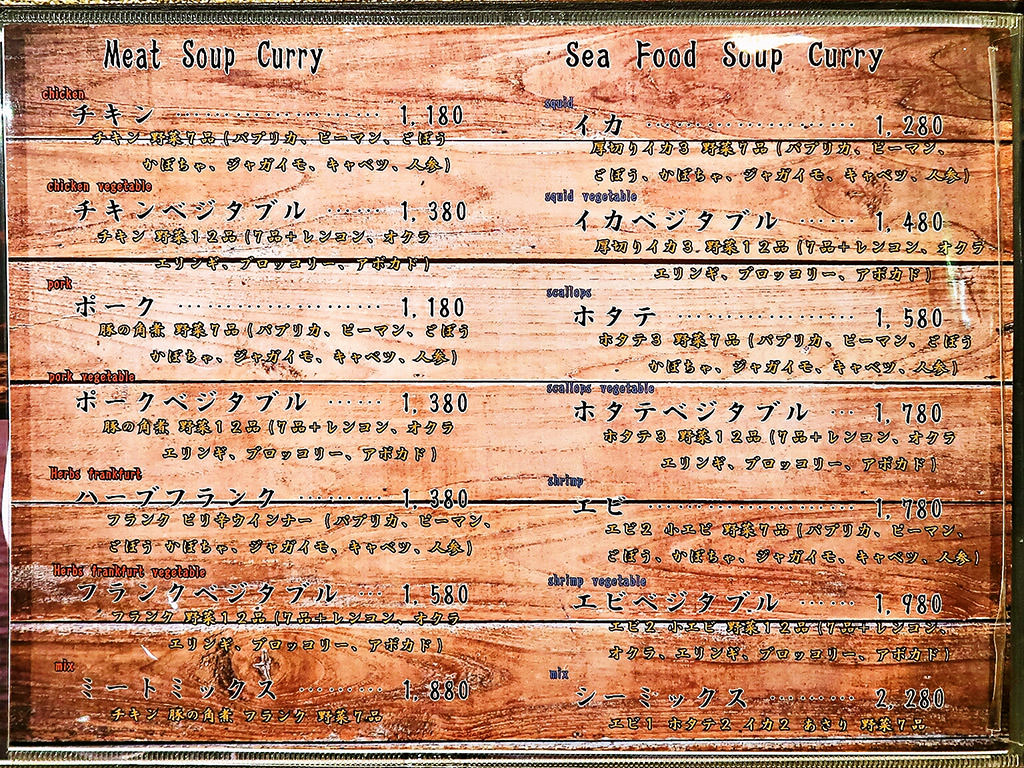 Meat Soup Curry
chicken
チキン ……………………… 1,180
チキン 野菜7品 (パプリカ、ピーマン、ごぼう
かぼちゃ、ジャガイモ、キャベツ、人参)
chicken vegetable
チキンベジタブル ……… 1,380
チキン 野菜12品 (7品+レンコン、オクラ
エリンギ、ブロッコリー、アボカド)
pork
ポーク ……………………… 1,180
豚の角煮 野菜7品 (パプリカ、ピーマン、ごぼう
かぼちゃ、ジャガイモ、キャベツ、人参)
pork vegetable
ポークベジタブル ……… 1,380
豚の角煮 野菜12品 (7品+レンコン、オクラ
エリンギ、ブロッコリー、アボカド)
Herbs frankfurt
ハーブフランク ………… 1,380
フランク ピリ辛ウインナー (パプリカ、ピーマン、
ごぼう かぼちゃ、ジャガイモ、キャベツ、人参)
Herbs frankfurt vegetable
フランクベジタブル …… 1,580
フランク 野菜12品 (7品+レンコン、オクラ
エリンギ、ブロッコリー、アボカド)
mix
ミートミックス ………… 1,880
チキン 豚の角煮 フランク 野菜7品
Sea Food Soup Curry
squid
イカ ……………………… 1,280
厚切りイカ3 野菜7品 (パプリカ、ピーマン、
ごぼう、かぼちゃ、ジャガイモ、キャベツ、人参)
squid vegetable
イカベジタブル ……… 1,480
厚切りイカ3 野菜12品 (7品+レンコン、オクラ
エリンギ、ブロッコリー、アボカド)
scallops
ホタテ …………………… 1,580
ホタテ3 野菜7品 (パプリカ、ピーマン、ごぼう
かぼちゃ、ジャガイモ、キャベツ、人参)
scallops vegetable
ホタテベジタブル … 1,780
ホタテ3 野菜12品 (7品+レンコン、オクラ
エリンギ、ブロッコリー、アボカド)
shrimp
エビ ……………………… 1,780
エビ2 小エビ 野菜7品 (パプリカ、ピーマン、
ごぼう、かぼちゃ、ジャガイモ、キャベツ、人参)
shrimp vegetable
エビベジタブル ……… 1,980
エビ2 小エビ 野菜12品 (7品+レンコン、
オクラ、エリンギ、ブロッコリー、アボカド)
mix
シーミックス ………… 2,280
エビ1 ホタテ2 イカ2 あさり 野菜7品